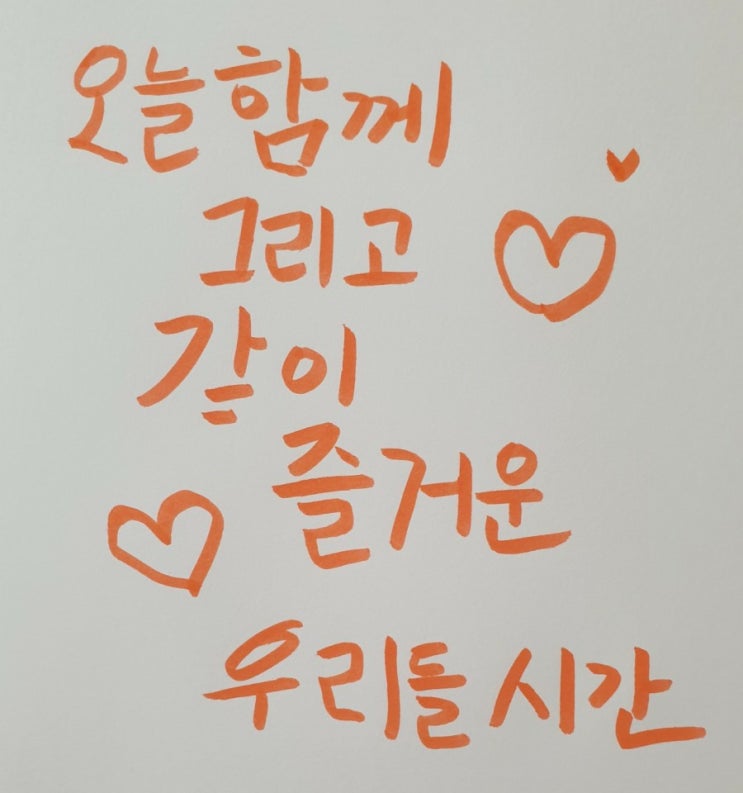 오늘 함께
그리고
같이
즐거운
우리들 시간